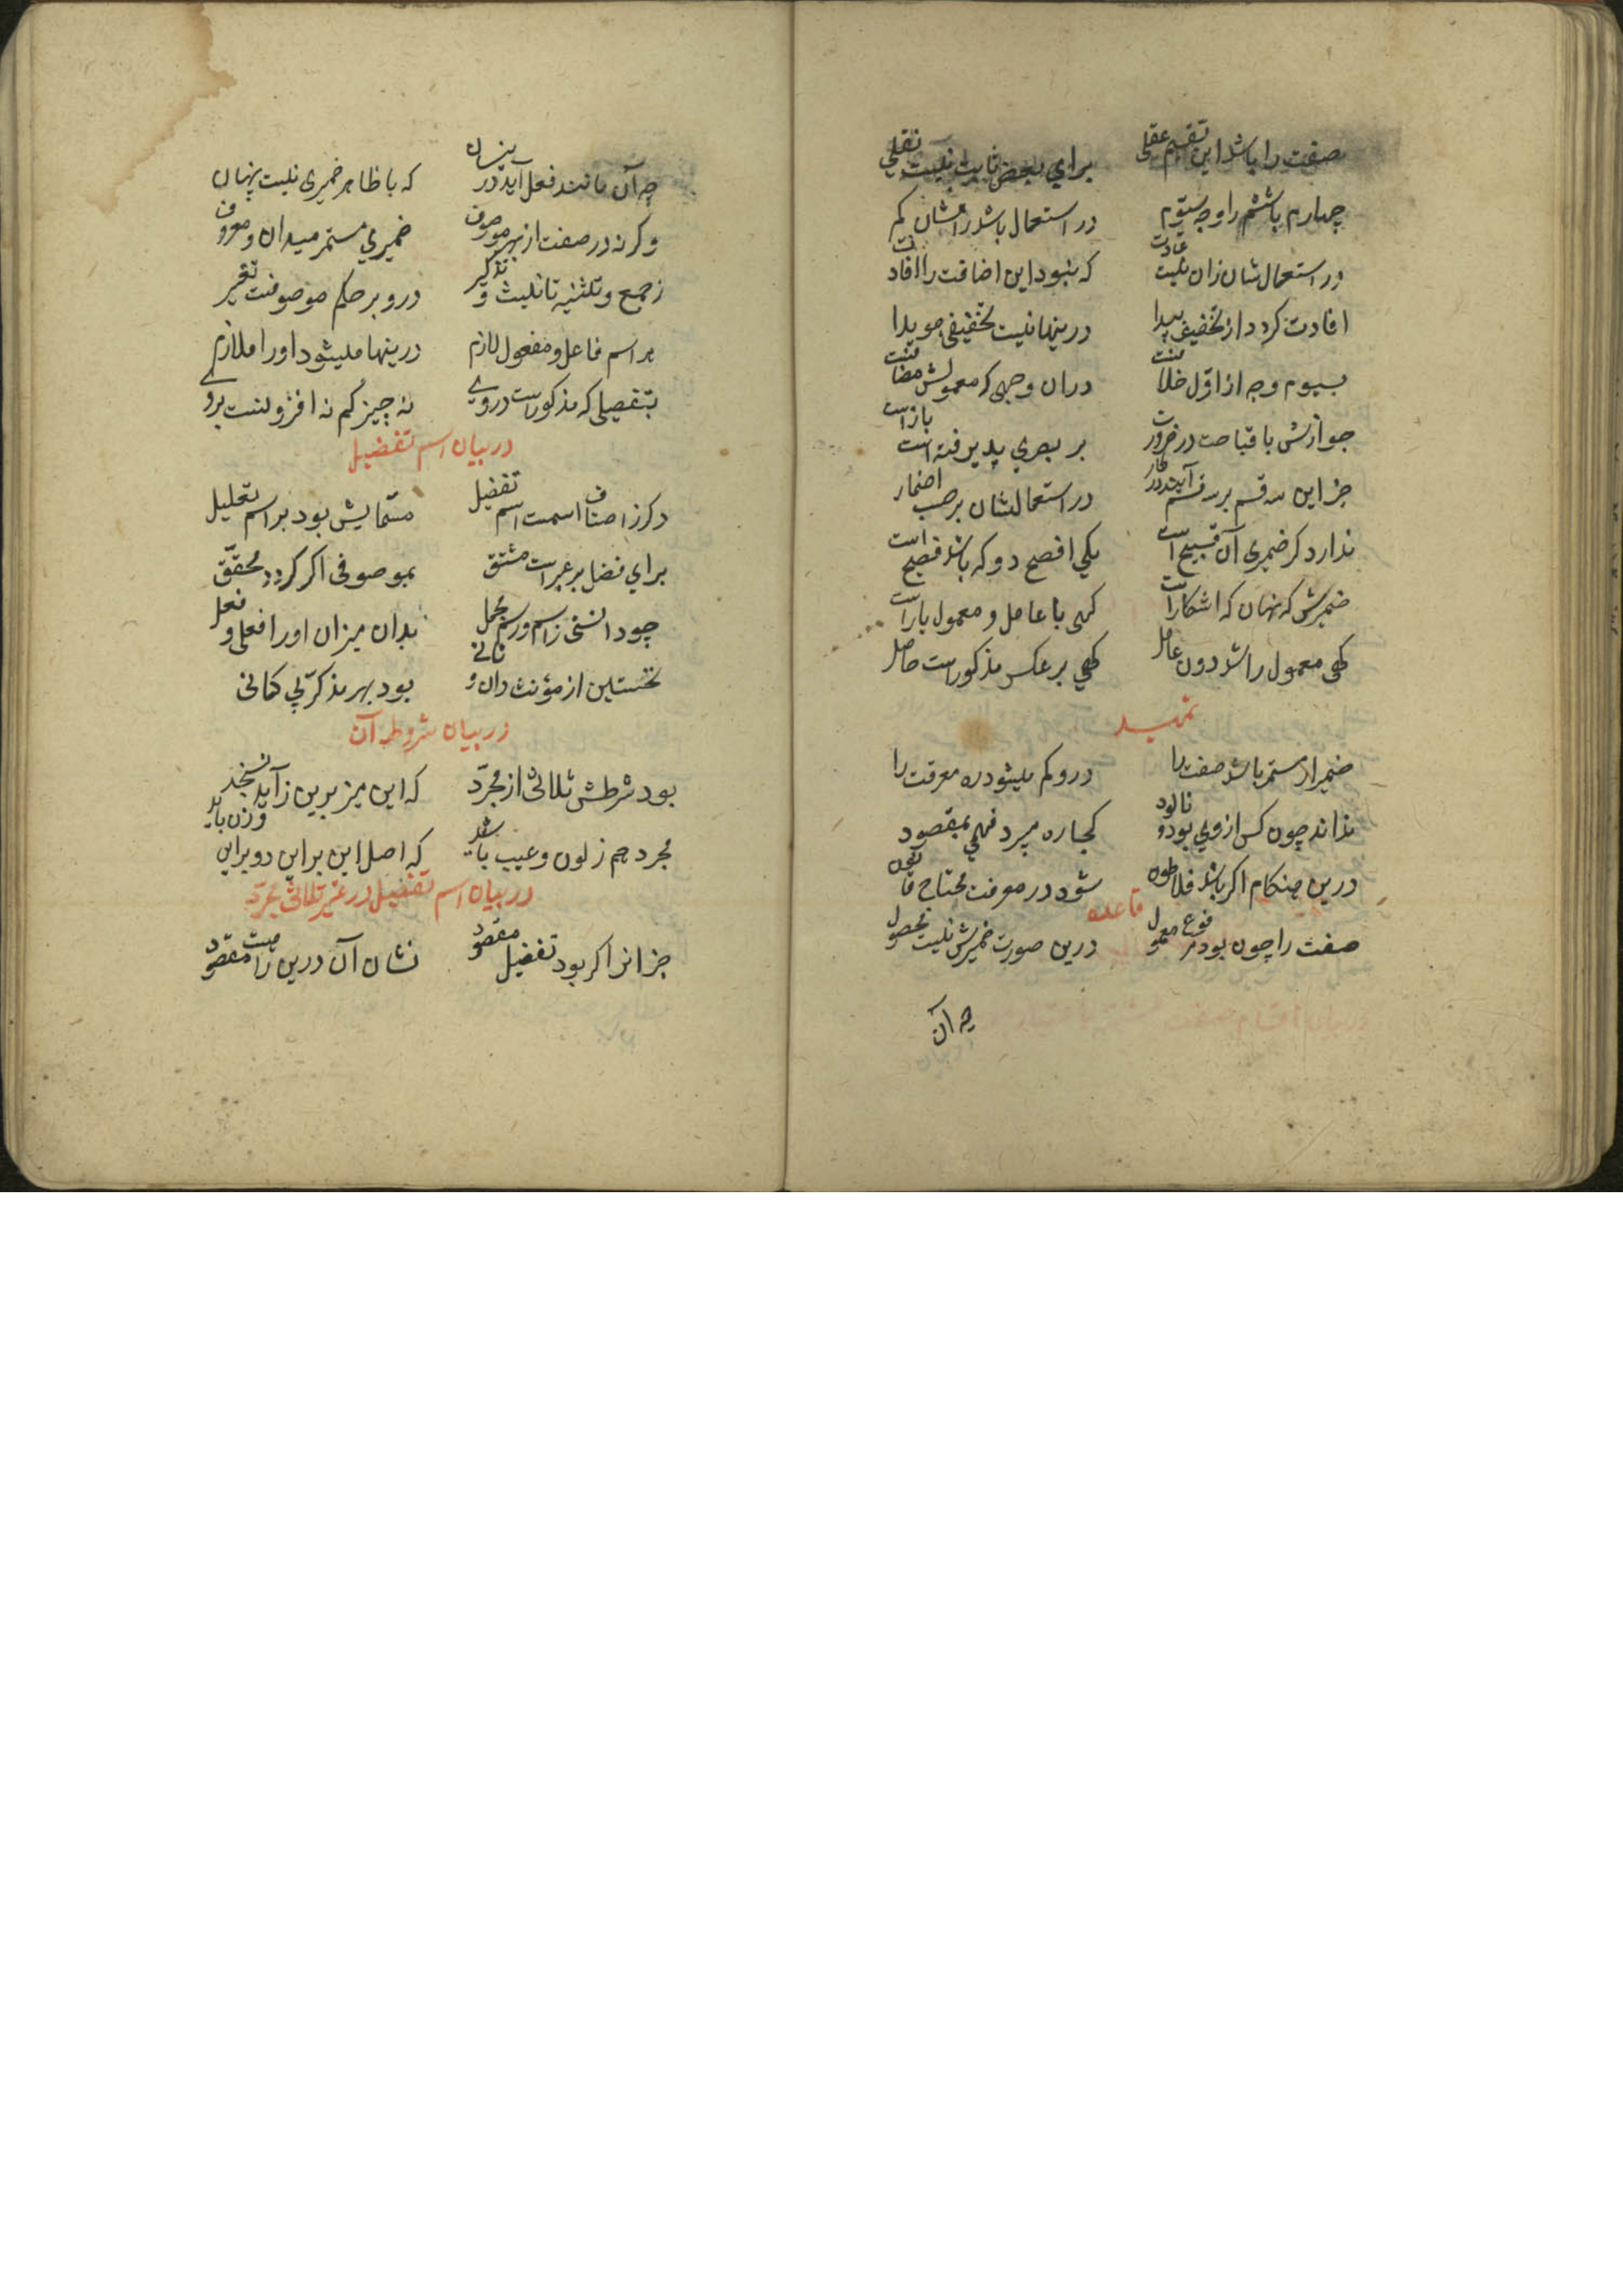 صفت را باشد این تقسیم عقلی برای بعض ثابت نیست نقلی
چهارم با ششم را وجه سیّوم در استعمال باشد راهشان کم
در استعمال شان زان نیست عادت که نبود این اضافت را افادت
افادت کردد از تخفیف پیدا درینها نیست تخفیفی هویدا
بسیوم وجه از اوّل خلافست دران وجهی که معمولش مضافست
جوازش با قباحت در ضرورت بر بصری پذیرفته است
جز این سه قسم بر سه قسم آیند در کار در استعمالشان بر حسب اضمار
ندارد کر ضمیری آن قبیح است یکی افصح دو که باشد فصیح است
ضمیرش که نهان که اشکارا است کهی با عامل و معمول یارا است
کهی معمول را شد دون عامل کهی بر عکس مذکور است حاصل
تمهید
ضمیر از مستتر باشد صفت را درو کم میشود ره معرفت را
نداند چون کس از وی بود و نابود کجا ره میبرد فهمی بمقصود
درین هنکام اکر باشد فلاطون شود در معرفت محتاج قانون
قاعده
صفت را چون بود مرفوع معمول درین صورت ضمیرش نیست محصول
چه آن
چه آن مانند فعل آید درینسان که با ظاهر ضمیری نیست پنهان
وکرنه در صفت از بهر موصوف ضمیری مستتر میدان و معروف
ز جمع و تثنیه تانیث و تذکیر درو بر حکم موصوفست تغییر
هر اسم فاعل و مفعول لازم درینها میشود او را ملازم
بتفصیلی که مذکور است در وی نه چیز کم نه افزونست بر وی
در بیان اسم تفضیل
دکر ز اصناف اسمست اسم تفضیل مسمّایش بود بر اسم تعلیل
برای فضل بر غیر است مشتق بموصوفی اکر کردد محقّق
چو دانستی ز اسم و رسم مجمل بدان میزان او را افعل و فعلی
نخستین از مؤنث دان و ثانی بود بهر مذکر بی کمانی
در بیان شروط آن
بود شرطش ثلاثی از مجرّد که این میز برین زاید نسنجد
مجرد هم ز لون و عیب باشد که اصل این برای دو برای وزن باید
در بیان اسم تفضیل در غیر ثلاثی مجرّد
جز انرا کر بود تفضیل مقصود نشان آن درین راهست مقصود